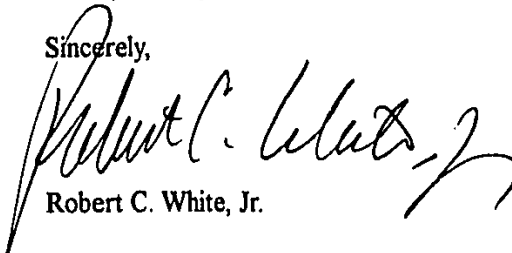 Sincerely,
Robert C. White, Jr.
Robert C. White, Jr.